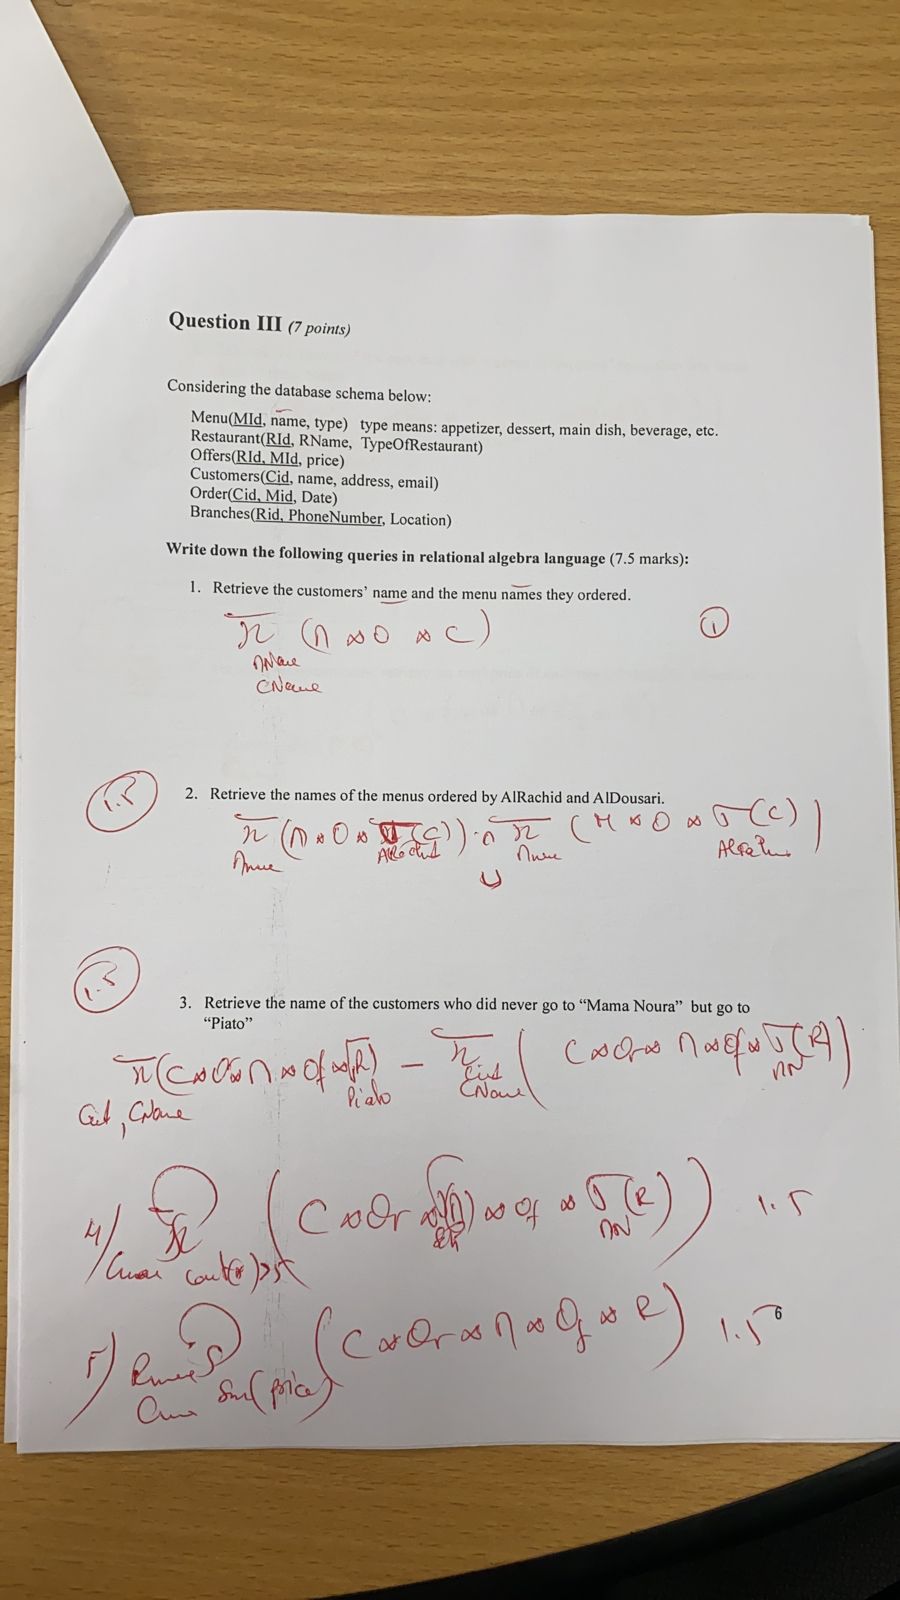 Question III (7 points)
Considering the database schema below:
Menu(MId, name, type) type means: appetizer, dessert, main dish, beverage, etc.
Restaurant(RId, RName, TypeOfRestaurant)
Offers(RId, MId, price)
Customers(Cid, name, address, email)
Order(Cid, Mid, Date)
Branches(Rid, PhoneNumber, Location)
Write down the following queries in relational algebra language (7.5 marks):
1. Retrieve the customers' name and the menu names they ordered.
π (M ⋈ O ⋈ C)
1
CName
2. Retrieve the names of the menus ordered by AlRachid and AlDousari.
1.5
π (M ⋈ O ⋈ σ(C)) ∩ π (M ⋈ O ⋈ σ(C))
∪
3. Retrieve the name of the customers who did never go to “Mama Noura” but go to
“Piato”
1.5
π(C ⋈ Or ⋈ M ⋈ Of ⋈ σ(R)) − π (C ⋈ Or ⋈ M ⋈ Of ⋈ σ(R))
Cid, CName Piato Cid CName MN
4/ (C ⋈ Or ⋈ σ(M) ⋈ Of ⋈ σ(R)) 1.5
MN
count(*)>5
5) (C ⋈ Or ⋈ M ⋈ Of ⋈ R) 1.5
Sum(price)
6